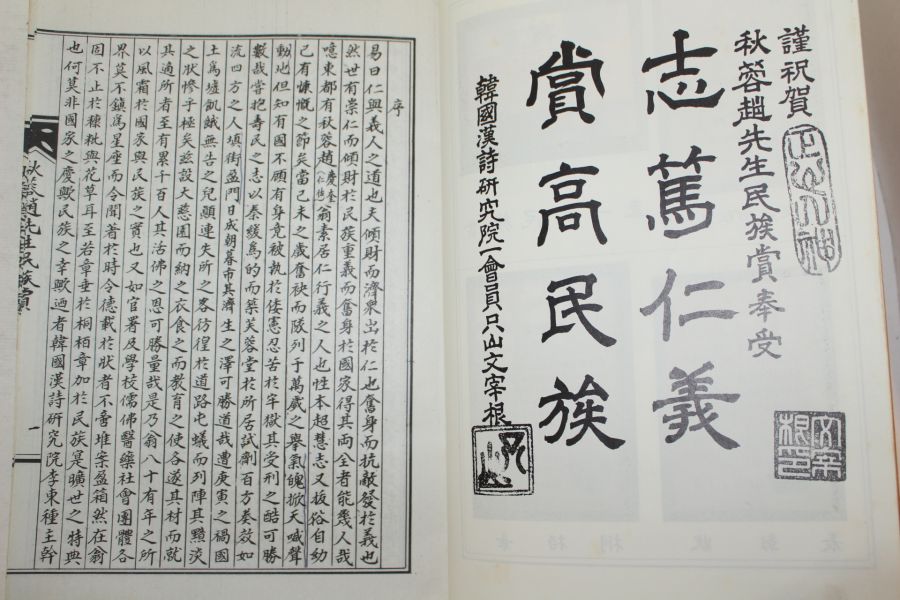 謹祝賀
秋蓉趙先生民族賞奉受
志篤仁義
賞高民族
韓國漢詩研究院一會員只山文宰根
文宰根印
序
易曰仁與義人之道也夫傾財而濟衆出於仁也奮身而抗敵發於義也
然世有崇仁而傾財於民族重義而奮身於國家得其兩全者能幾人哉
噫東都有秋蓉趙慶奎翁素居仁行義之人也性本超慧志又拔俗自幼
己有慷慨之節矣當己未之歲奮袂而隊列于萬歲之擧氣魄掀天喊聲
動地但知有國不顧有身竟被執於倭憲忍苦於牢獄其受刑之酷可勝
數哉常抱壽民之志以秦緩爲的而築芙蓉堂於所居試劑百方奏效如
流四方之人塡街盈門日成朝暮市其濟生之澤可勝道哉遭庚寅之禍國
土爲墟飢餓無告之兒顚連失所之客彷徨於道路屯蟻而列陣其黯淡
之狀慘乎極矣玆設大慈園而納之衣食之而敎育之使各遂其材而就
其適所者至有累千百人其活佛之恩可勝量哉是乃翁八十有年之所
以風霜於國家與民族之實也又如官署及學校儒佛醫藥社會團體各
界莫不鎭爲星座而令聞著於時令德載於狀者不啻堆案盈箱然在翁
固不止於糠粃與花草耳至若章垂於桐栢章加於民族是曠世之特典
也何莫非國家之慶歟民族之幸歟迺者韓國漢詩研究院李東種主幹
秋蓉趙先生民族賞
一